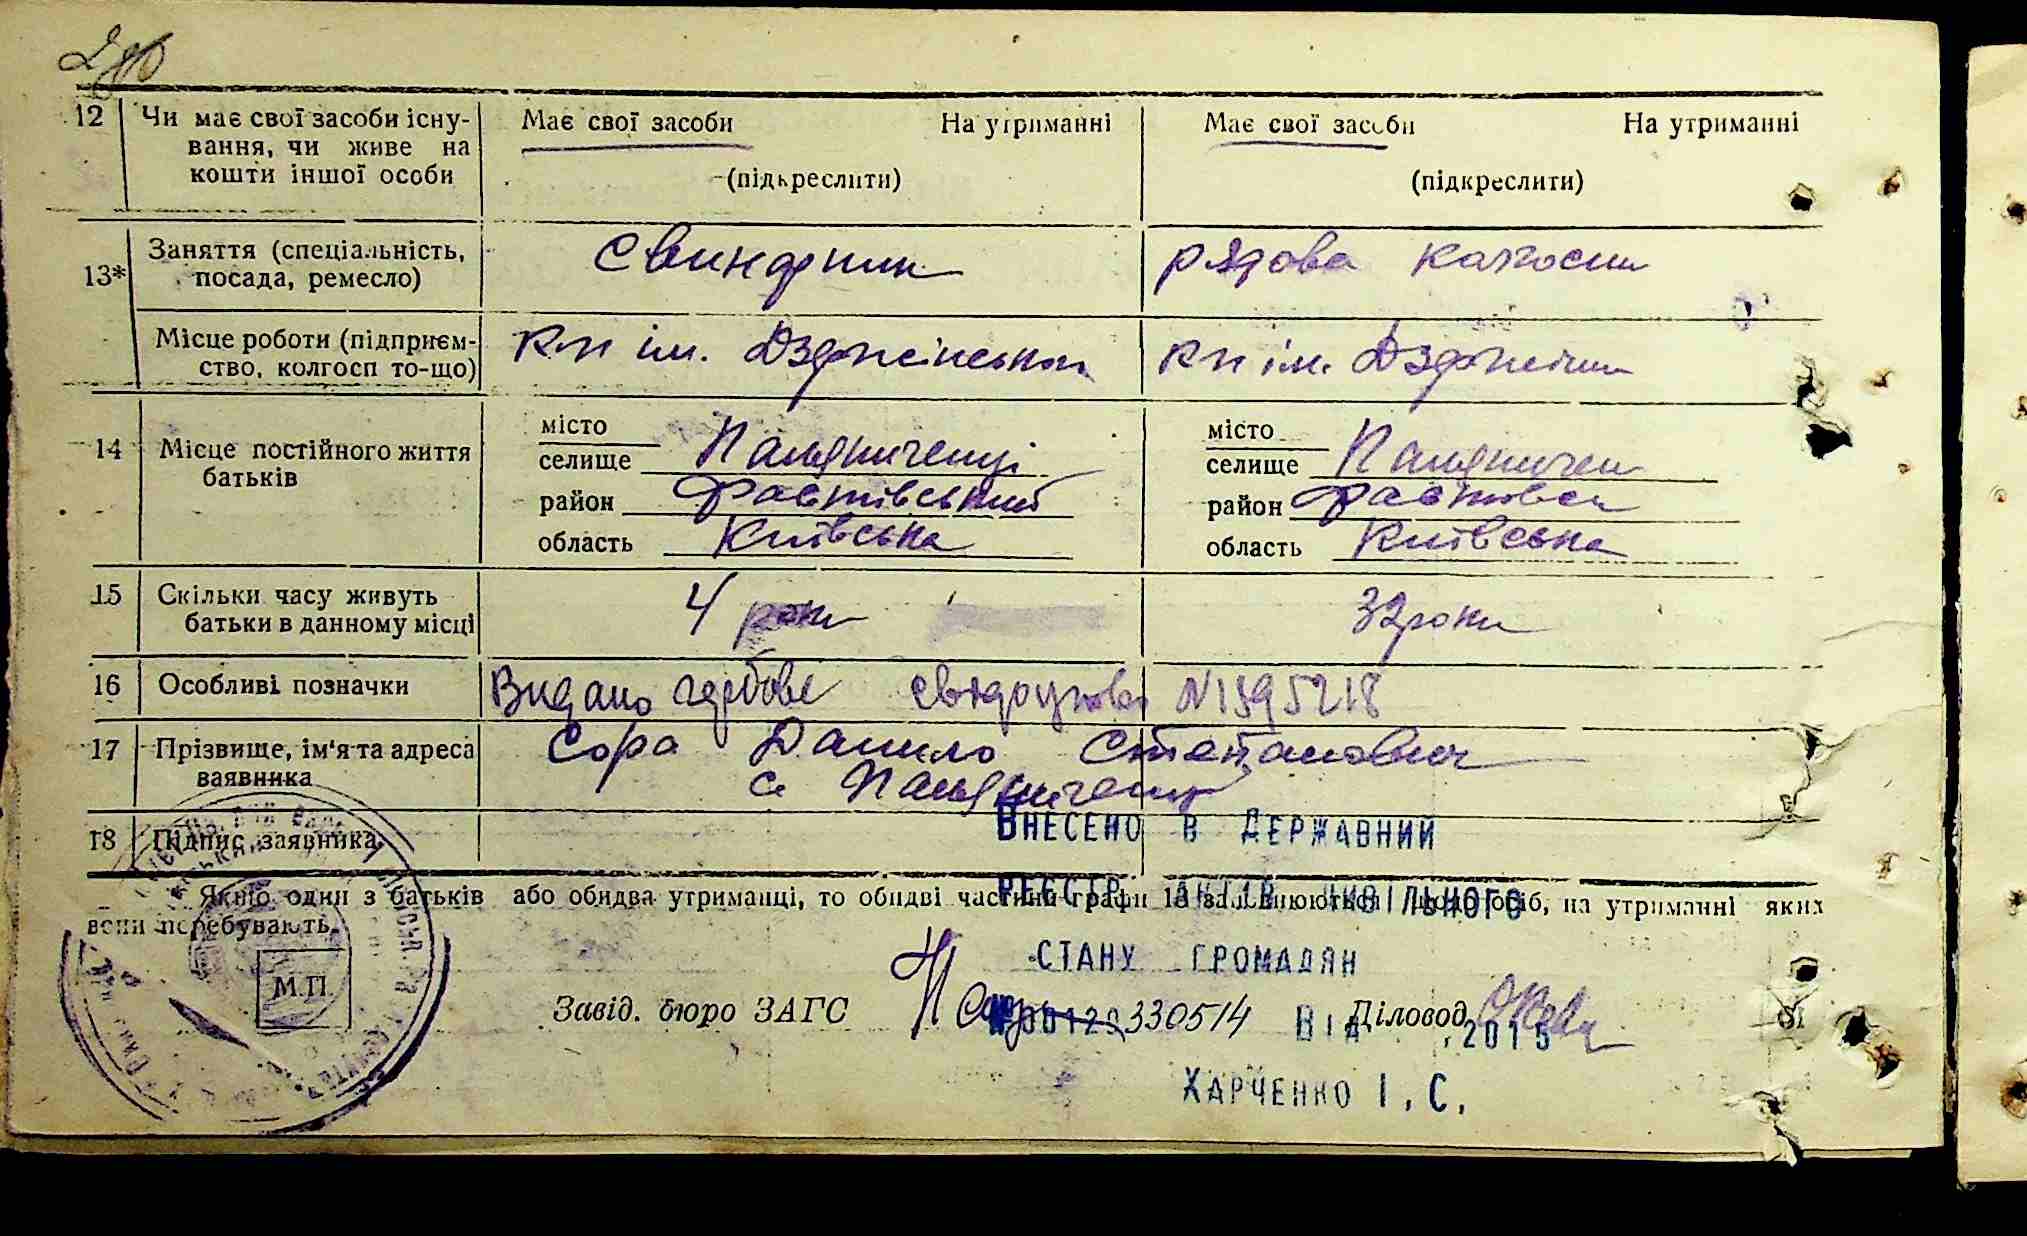 12 Чи має свої засоби існу-
вання, чи живе на
кошти іншої особи
Має свої засоби На утриманні
(підкреслити)
Має свої засоби На утриманні
(підкреслити)
13* Заняття (спеціальність,
посада, ремесло)
свинарник
рядова колгоспн
Місце роботи (підприєм-
ство, колгосп то-що)
кп ім. Дзержинського
кп ім. Дзержин
14 Місце постійного життя
батьків
місто
селище Паляниченці
район Фастівський
область Київська
місто
селище Паляничен
район Фастовск
область Київська
15 Скільки часу живуть
батьки в данному місці
4 роки
32 роки
16 Особливі позначки
Видано гербове свідоцтво N 1595218
17 Прізвище, ім'я та адреса
заявника
Сора Данило Степанович
с. Паляниченці
18 Підпис заявника
Якщо один з батьків або обидва утриманці, то обидві частини графи 13 заповнюються щодо осіб, на утриманні яких
вони перебувають.
ВНЕСЕНО В ДЕРЖАВНИЙ
РЕЄСТР АКТІВ ЦИВІЛЬНОГО
СТАНУ ГРОМАДЯН
М.П.
Завід. бюро ЗАГС
№00129330514 ВІД .2015
Діловод
ХАРЧЕНКО І.С.